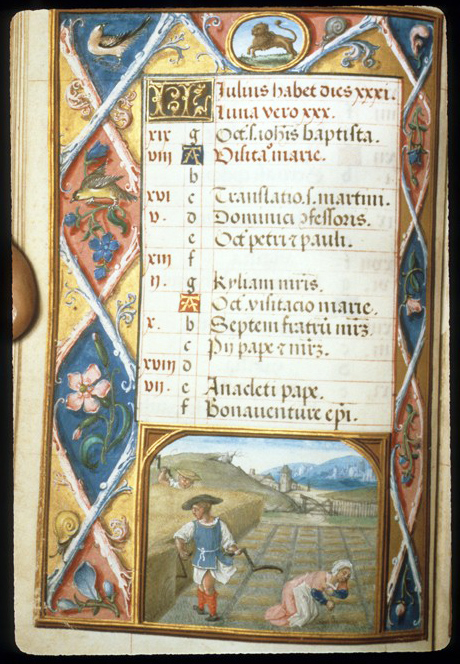 KL Julius habet dies xxxi.
Luna vero xxx.
xix g Oct. s. iohis baptista.
viii A Visita° marie.
b
xvi c Translatio. s. martini.
v. d Dominici ꝯfessoris.
e Oct petri ⁊ pauli.
xiii f
ii. g Kyliani mr̄is.
A Oct. visitacio marie.
x. b Septem fratrū mr̄z.
c Pij pape ⁊ mr̄z.
xviii d
vii. e Anacleti pape.
f Bonauenture ep̄i.